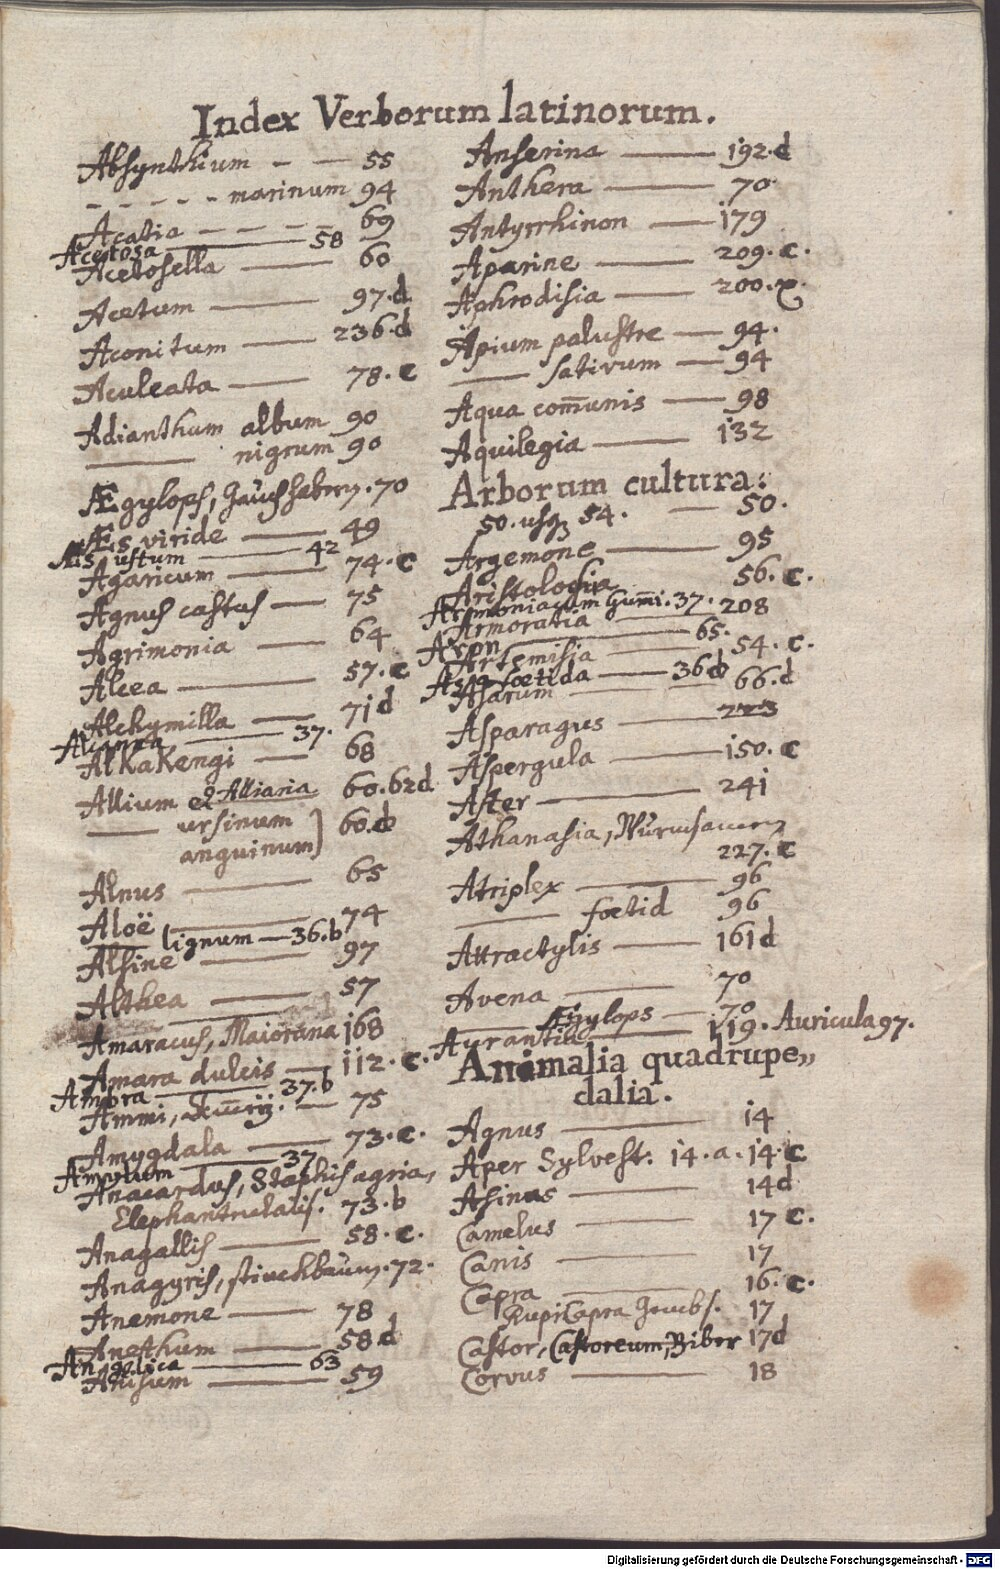 Index Verborum latinorum.
Absynthium - — 55
- - - - - marinum 94
Acatia - - - - 69
Acetosa — 58
Acetosella — 60
Acetum — 97.d
Aconitum — 236.d
Aculeata — 78.c
Adianthum album 90
— nigrum 90
Ægylops, 70
Æs viride — 49
ustum — 42
Agaricum — 74.c
Agnus castus — 75
Agrimonia — 64
Alcea — 57.c
Alchymilla — 71d
37.
AlKaKengi — 68
Allium & Alliaria 60.62d
— ursinum ] 60.d
anguinum
Alnus — 65
Aloë — 74
— lignum — 36.b
Alsine — 97
Althea — 57
Amaracus, Maiorana 168
Amara dulcis — 112.c.
Ambra — 37.b
Ammi, — 75
Amygdala — 73.c.
Amylum — 37
Anacardus, Staphisagria,
73.b
Anagallis — 58.c.
Anagyris, 72.
Anemone — 78
Anethum — 58d
Angelica — 63
Anisum — 59
Anserina — 192.d
Anthera — 70
Antyrrhinon — 179
Aparine — 209.c.
Aphrodisia — 200.
Apium palustre — 94.
— sativum — 94
Aqua com̄unis — 98
Aquilegia — 132
Arborum cultura:
50. usq 54. — 50.
Argemone — 95
Aristologia 56.c.
Armoniacum Gum̄i. 37.
Armoratia — 208
Aron — 65.
Artemisia — 54.c.
Asa foetida — 36d
Asarum — 66.d
Asparagus —
Aspergula — 150.c
Aster — 241
Athanasia,
227.c
Atriplex — 96
— foetid 96
Attractylis — 161d
Avena — 70
— Ægylops — 70
Aurantia — 119. Auricula 97.
Animalia quadrupe„
dalia.
Agnus — 14
Aper Sylvest. 14.a.14.c
Asinus — 14d
Camelus — 17c.
Canis — 17
Capra — 16.c.
RupiCapra 17
Castor, Castoreum, Biber 17d
Corvus — 18
Digitalisierung gefördert durch die Deutsche Forschungsgemeinschaft - DFG